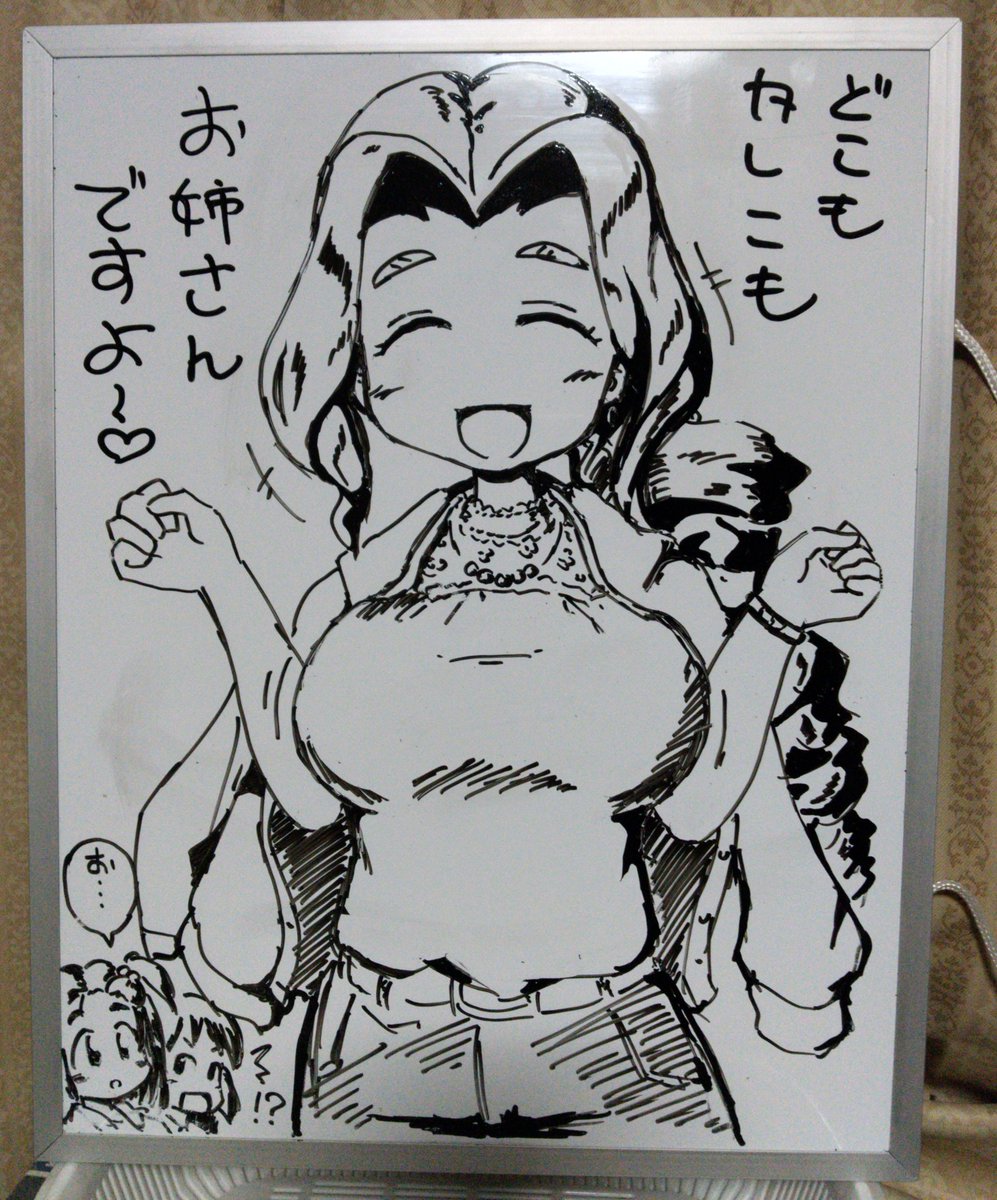 どこも
カしこも
お姉さん
ですよ～♡
お…
!?